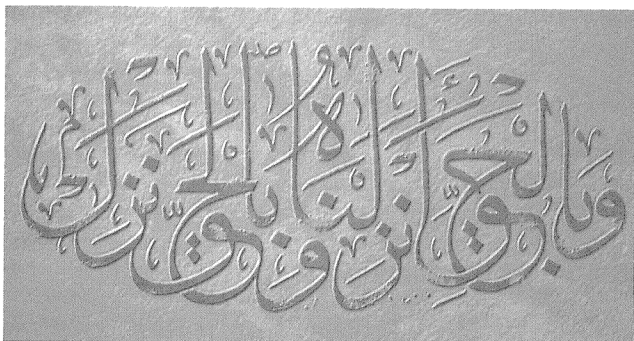 وَبِالْحَقِّ أَنْزَلْنَاهُ وَبِالْحَقِّ نَزَلَ